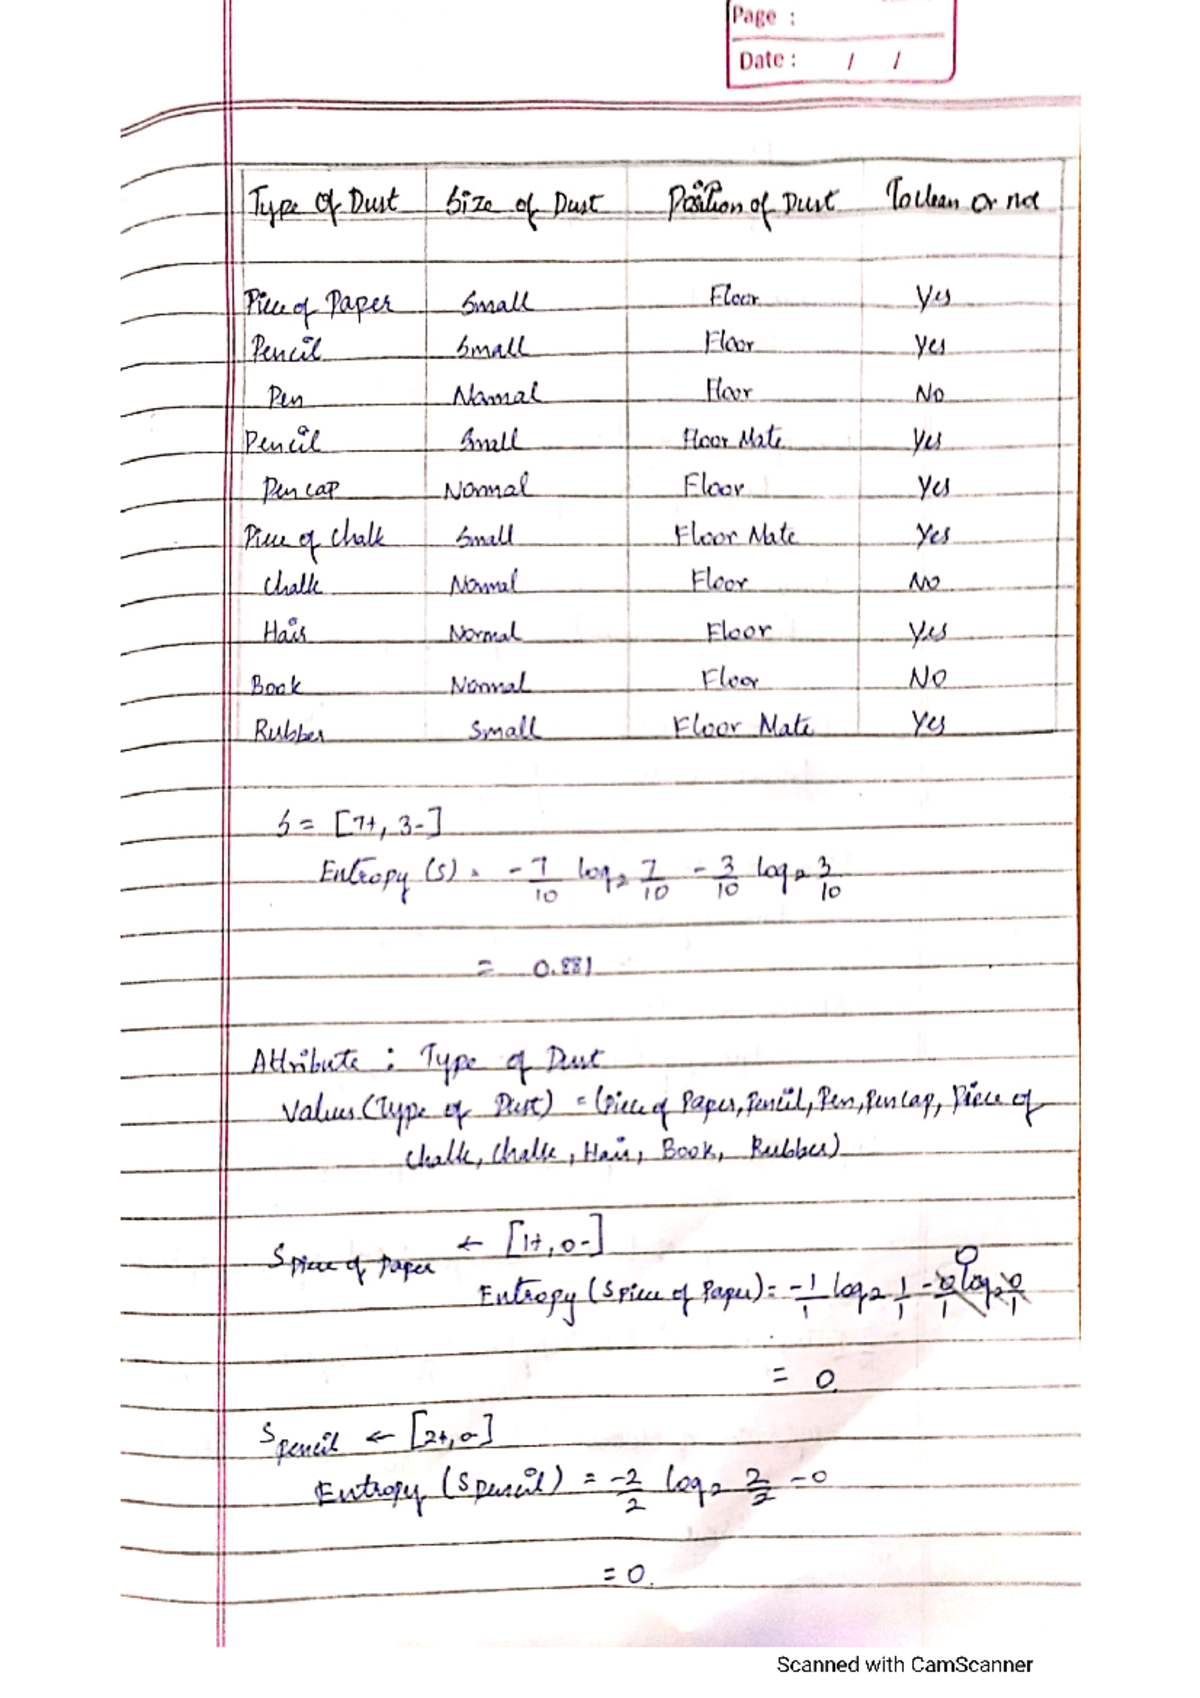 Page :
Date : / /
Type Of Dust Size of Dust Position of Dust To Clean or not
Piece of Paper Small Floor Yes
Pencil Small Floor Yes
Pen Normal Floor No
Pencil Small Floor Mate Yes
Pen cap Normal Floor Yes
Piece of Chalk Small Floor Mate Yes
Chalk Normal Floor No
Hair Normal Floor Yes
Book Normal Floor No
Rubber Small Floor Mate Yes
S = [7+, 3-]
Entropy (S) = -7/10 log2 7/10 - 3/10 log2 3/10
= 0.881
Attribute : Type of Dust
Values (Type of Dust) = (Piece of Paper, Pencil, Pen, Pen cap, Piece of
Chalk, Chalk, Hair, Book, Rubber)
S Piece of Paper ← [1+, 0-]
Entropy (S Piece of Paper) = -1/1 log2 1/1 - 0/1 log2 0/1 0
= 0.
S pencil ← [2+, 0-]
Entropy (S Pencil) = -2/2 log2 2/2 - 0
= 0.
Scanned with CamScanner